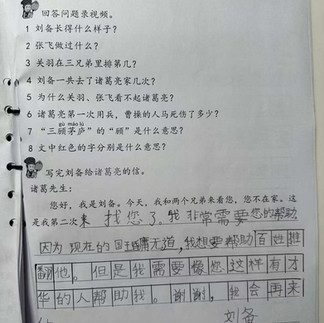 回答问题录视频。
1 刘备长得什么样子？
2 张飞做过什么？
3 关羽在三兄弟里排第几？
4 刘备一共去了诸葛亮家几次？
5 为什么关羽、张飞看不起诸葛亮？
6 诸葛亮第一次用兵，曹操的人马死伤了多少？
gù máo lú
7 “三顾茅庐”的“顾”是什么意思？
8 文中红色的字分别是什么意思？
写完刘备给诸葛亮的信。
诸葛先生：
您好，我是刘备。今天，我和两个兄弟来看您，您不在家。这
是我第二次来找您了。我非常需要您的帮助
因为现在的国王庸无道，我想要帮助百姓推
翻他。但是我需要像您这样有才
华的人帮助我。谢谢，我会再来
刘备